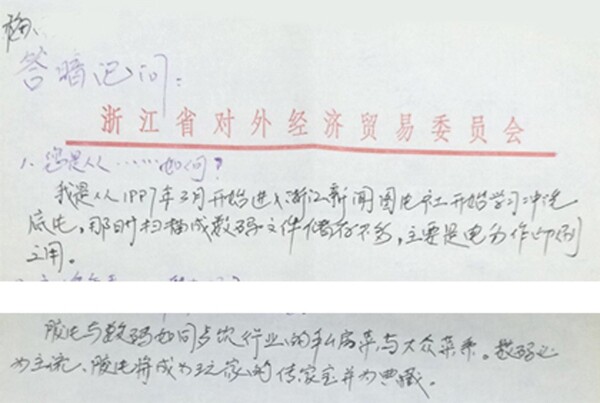 答暗记问：
浙江省对外经济贸易委员会
1. 您是从……如何？
我是从1997年3月开始进入浙江新闻图片社开始学习冲洗
底片，那时扫描成数码文件储存不多，主要是电分作印刷
之用。
胶片与数码如同餐饮行业的私房菜与大众菜系。数码必
为主流、胶片将成为玩家的传家宝并为典藏。